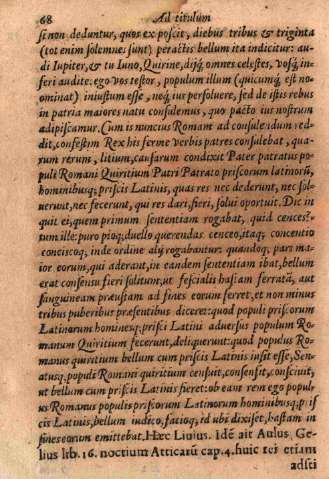 68 Ad titulum
si non deduntur, quos exposcit, diebus tribus & triginta
(tot enim solemnes sunt) peractis bellum ita indicitur: au-
di Iupiter, & tu Iuno, Quirine, dijq́; omnes cęlestes, vosq́; in-
feri audite: ego vos testor, populum illum (quicumq́; est no-
ominat) iniustum esse, neq́; ius persoluere, sed de istis rebus
in patria maiores natu consulemus, quo pacto ius nostrum
adipiscamur. Cum is nuncius Romam ad consulendum red-
dit, confestim Rex his ferme verbis patres consulebat, qua-
rum rerum, litium, causarum condixit Pater patratus po-
puli Romani Quiritium Patri Patrato priscorum latinorũ,
hominibusq; priscis Latinis, quas res nec dederunt, nec sol-
uerunt, nec fecerunt, qui res dari, fieri, solui oportuit. Dic in
quit ei, quem primum sententiam rogabat, quid censes?
tum ille: puro pioq; duello querendas censeo, itaq; concentio
conciscoq, inde ordine alij rogabantur: quandoq, pars ma-
ior eorum, qui aderant, in eandem sententiam ibat, bellum
erat consensu fieri solitum, ut fescialis hastam ferratã, aut
sanguineam præustam ad fines eorum ferret, et non minus
tribus puberibus præsentibus diceret: quod populi priscorum
Latinorum hominesq; prisci Latini aduersus populum Ro-
manum Quiritium fecerunt, deliquerunt: quod populus Ro-
manus quiritium bellum cum priscis Latinis iusit esse, Sen-
atusq, populi Romani quiritium censuit, consensit, consciuit,
ut bellum cum priscis Latinis fieret: ob eam rem ego popul-
us Romanus populis priscorum Latinorum hominibusq; pris
cis Latinis, bellum indico, facioq, id ubi dixiset, hastam in
fines eorum emittebat. Hæc Liuius. Idẽ ait Aulus Ge-
lius lib. 16. noctium Atticarũ cap. 4. huic rei etiam
adsti